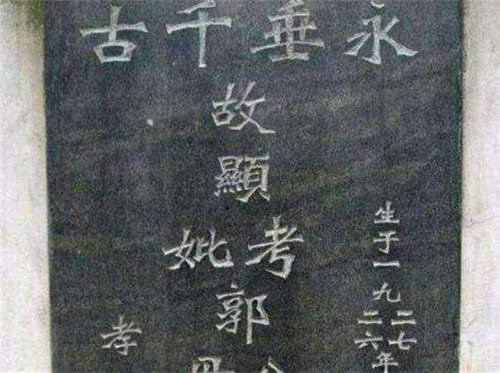 永垂千古
生于一九二七
二六年
故顯考
妣
郭
孝